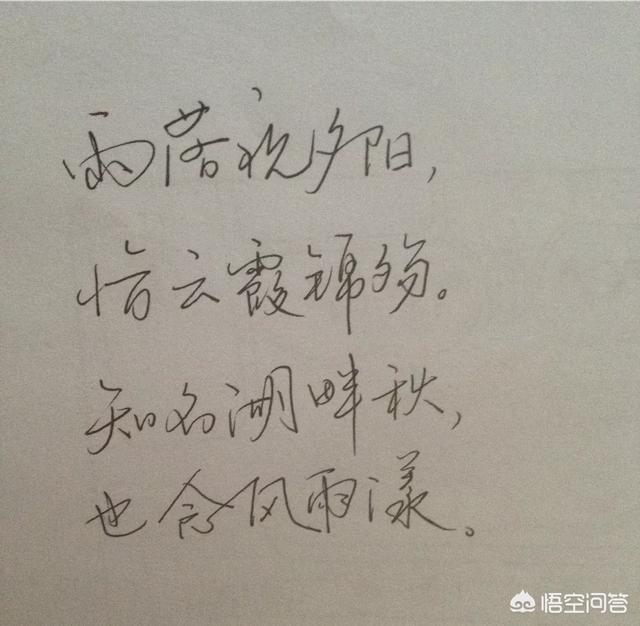 雨落祝夕阳，
恰云霞锦殇。
知名湖畔秋，
也含风雨漾。
悟空问答